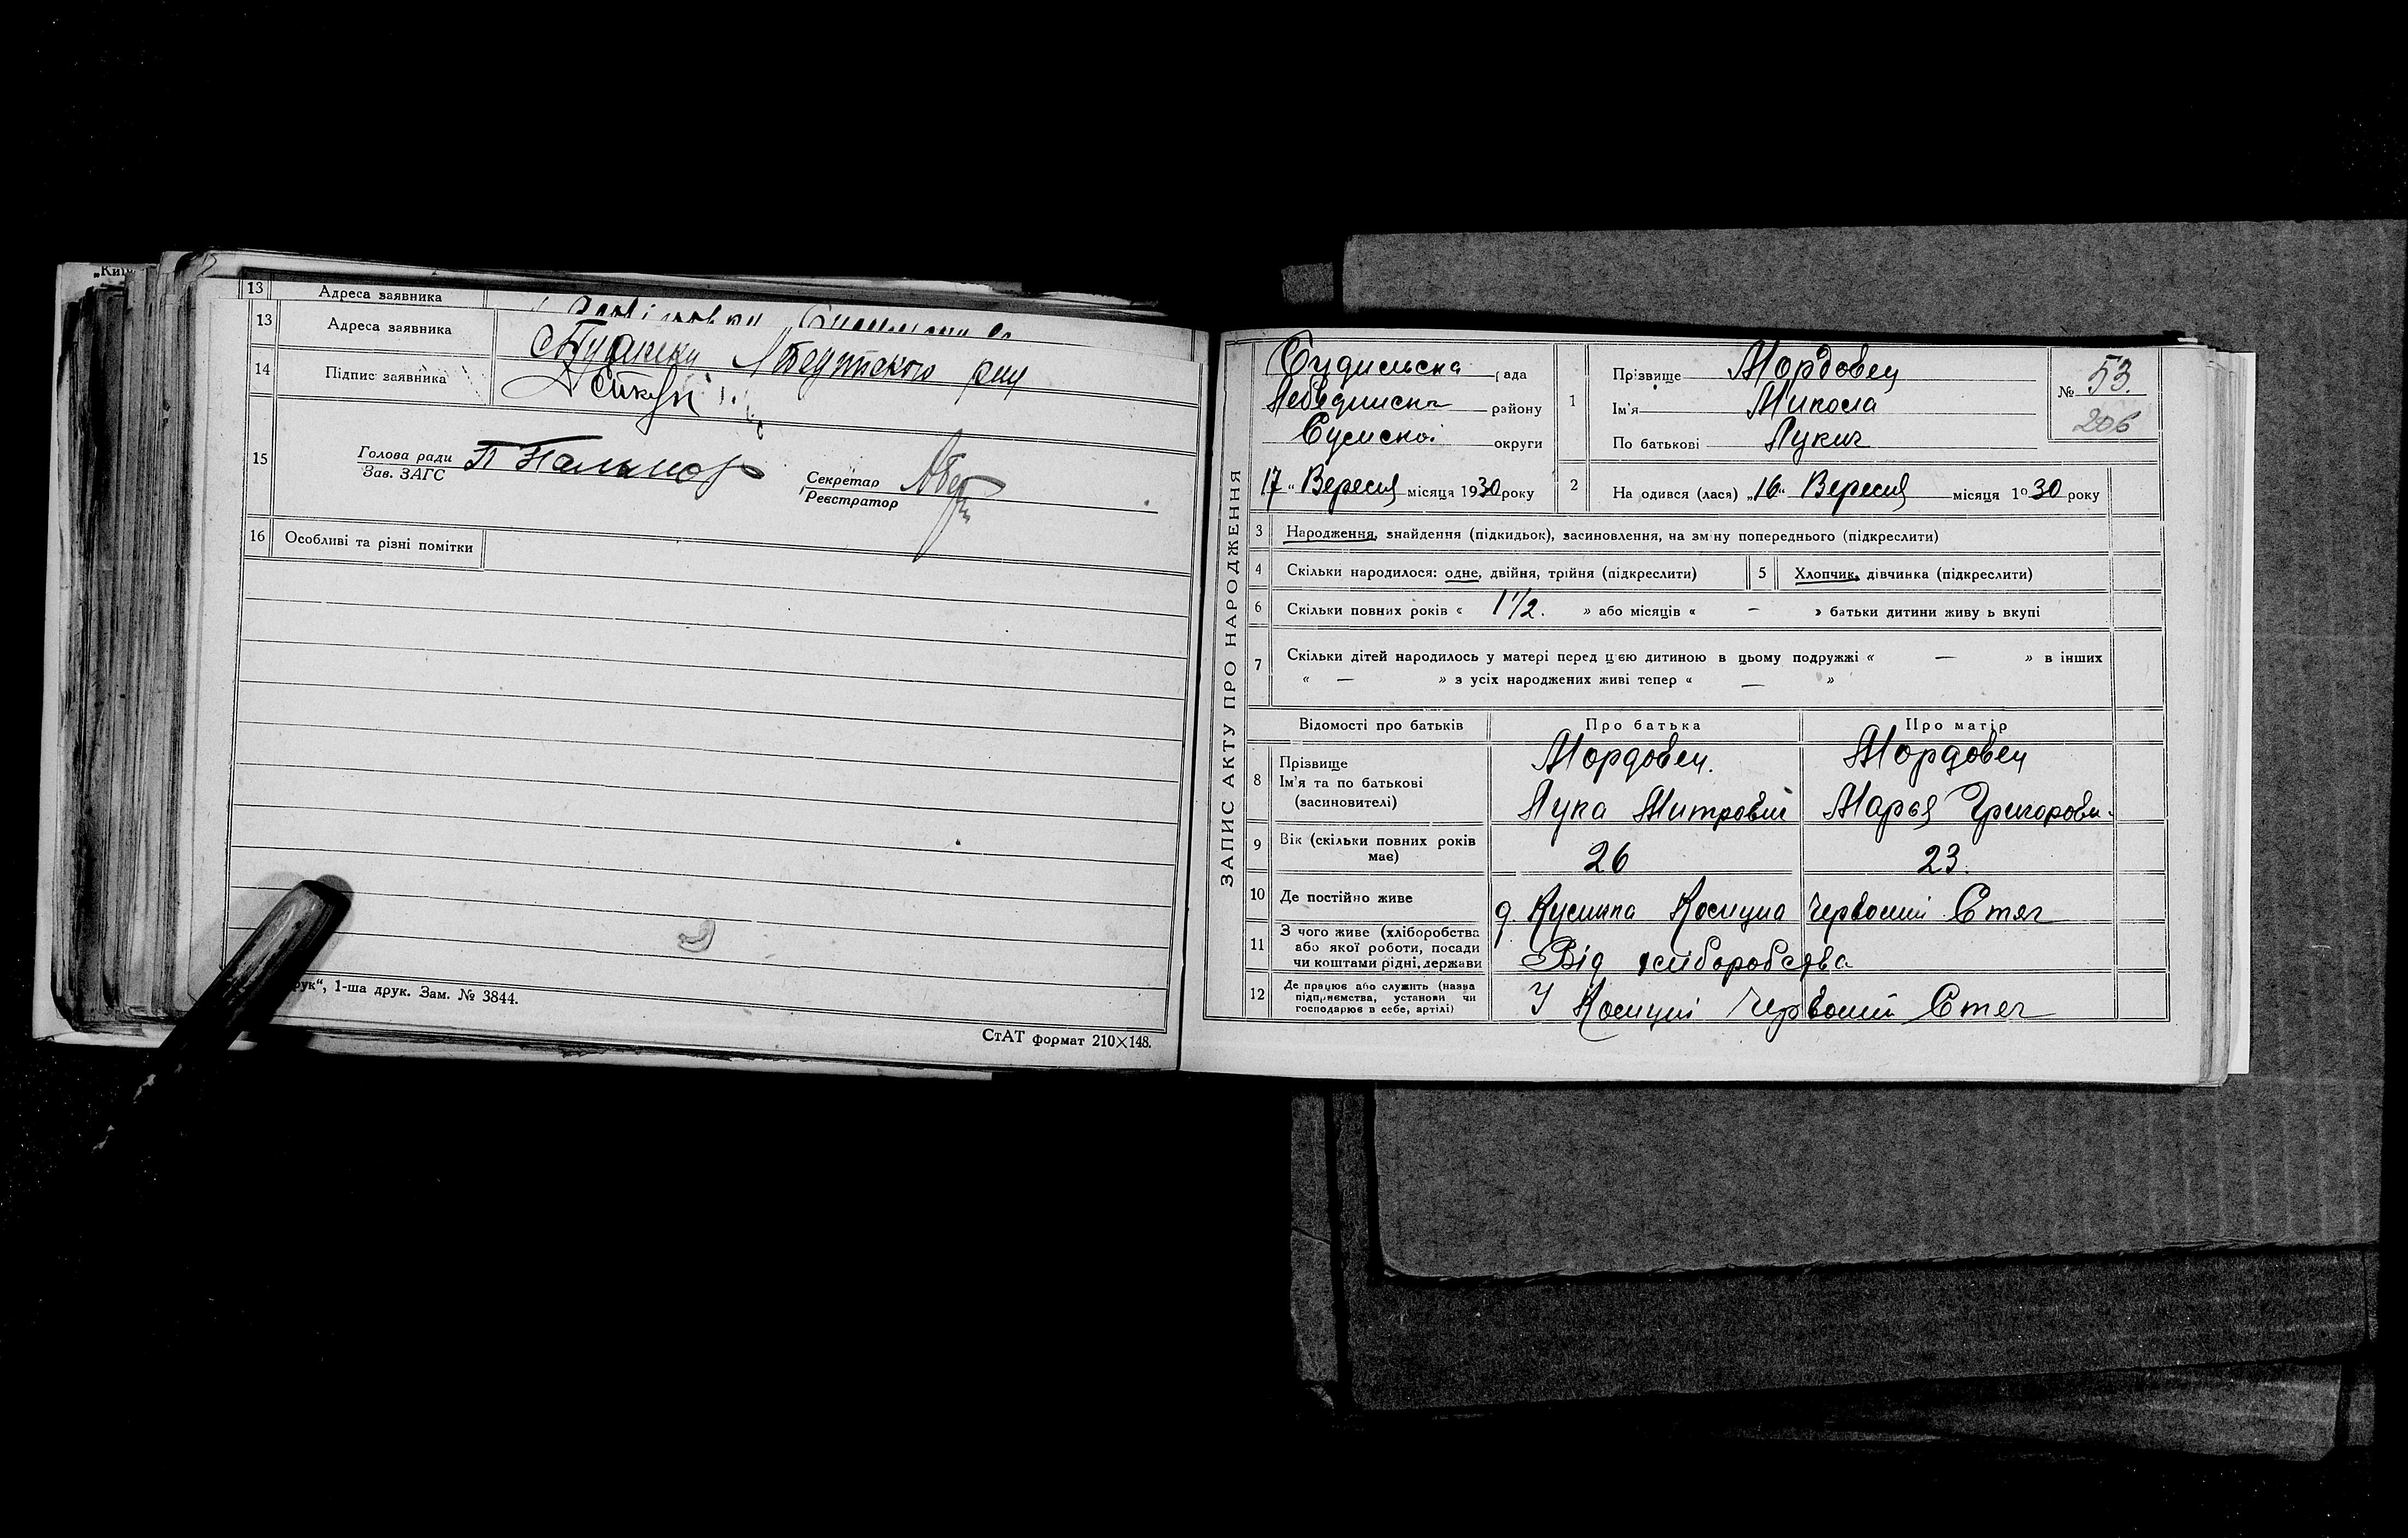 13 Адреса заявника
13 Адреса заявника
14 Підпис заявника
15 Голова ради
Зав. ЗАГС
Секретар
Реєстратор
16 Особливі та різні помітки
рук“, 1-ша друк. Зам. № 3844.
СтАТ формат 210×148.
ЗАПИС АКТУ ПРО НАРОДЖЕННЯ
рада
району
округи
17 „ Вересня місяця 1930 року
1 Прізвище Мордовец
Ім'я Микола
По батькові Лукич
№ 53.
206
2 На одився (лася) „16“ Вересня місяця 1930 року
3 Народження, знайдення (підкидьок), засиновлення, на зм ну попереднього (підкреслити)
4 Скільки народилося: одне, двійня, трійня (підкреслити)
5 Хлопчик, дівчинка (підкреслити)
6 Скільки повних років « 1 1/2. » або місяців « — » батьки дитини живу ь вкупі
7 Скільки дітей народилось у матері перед цією дитиною в цьому подружжі « — » в інших
« — » з усіх народжених живі тепер « — »
Відомості про батьків Про батька Про матір
8 Прізвище Мордовец. Мордовец
Ім'я та по батькові
(засиновителі) Лука Митрович Марья Григоровн.
9 Вік (скільки повних років
має) 26 23.
10 Де постійно живе Комуна Червоний Стяг
11 З чого живе (хліборобства
або якої роботи, посади
чи коштами рідні, держави Від хліборобства
12 Де працює або служить (назва
підприємства, установи чи
господарює в себе, артілі) У Комуні Червоний Стяг